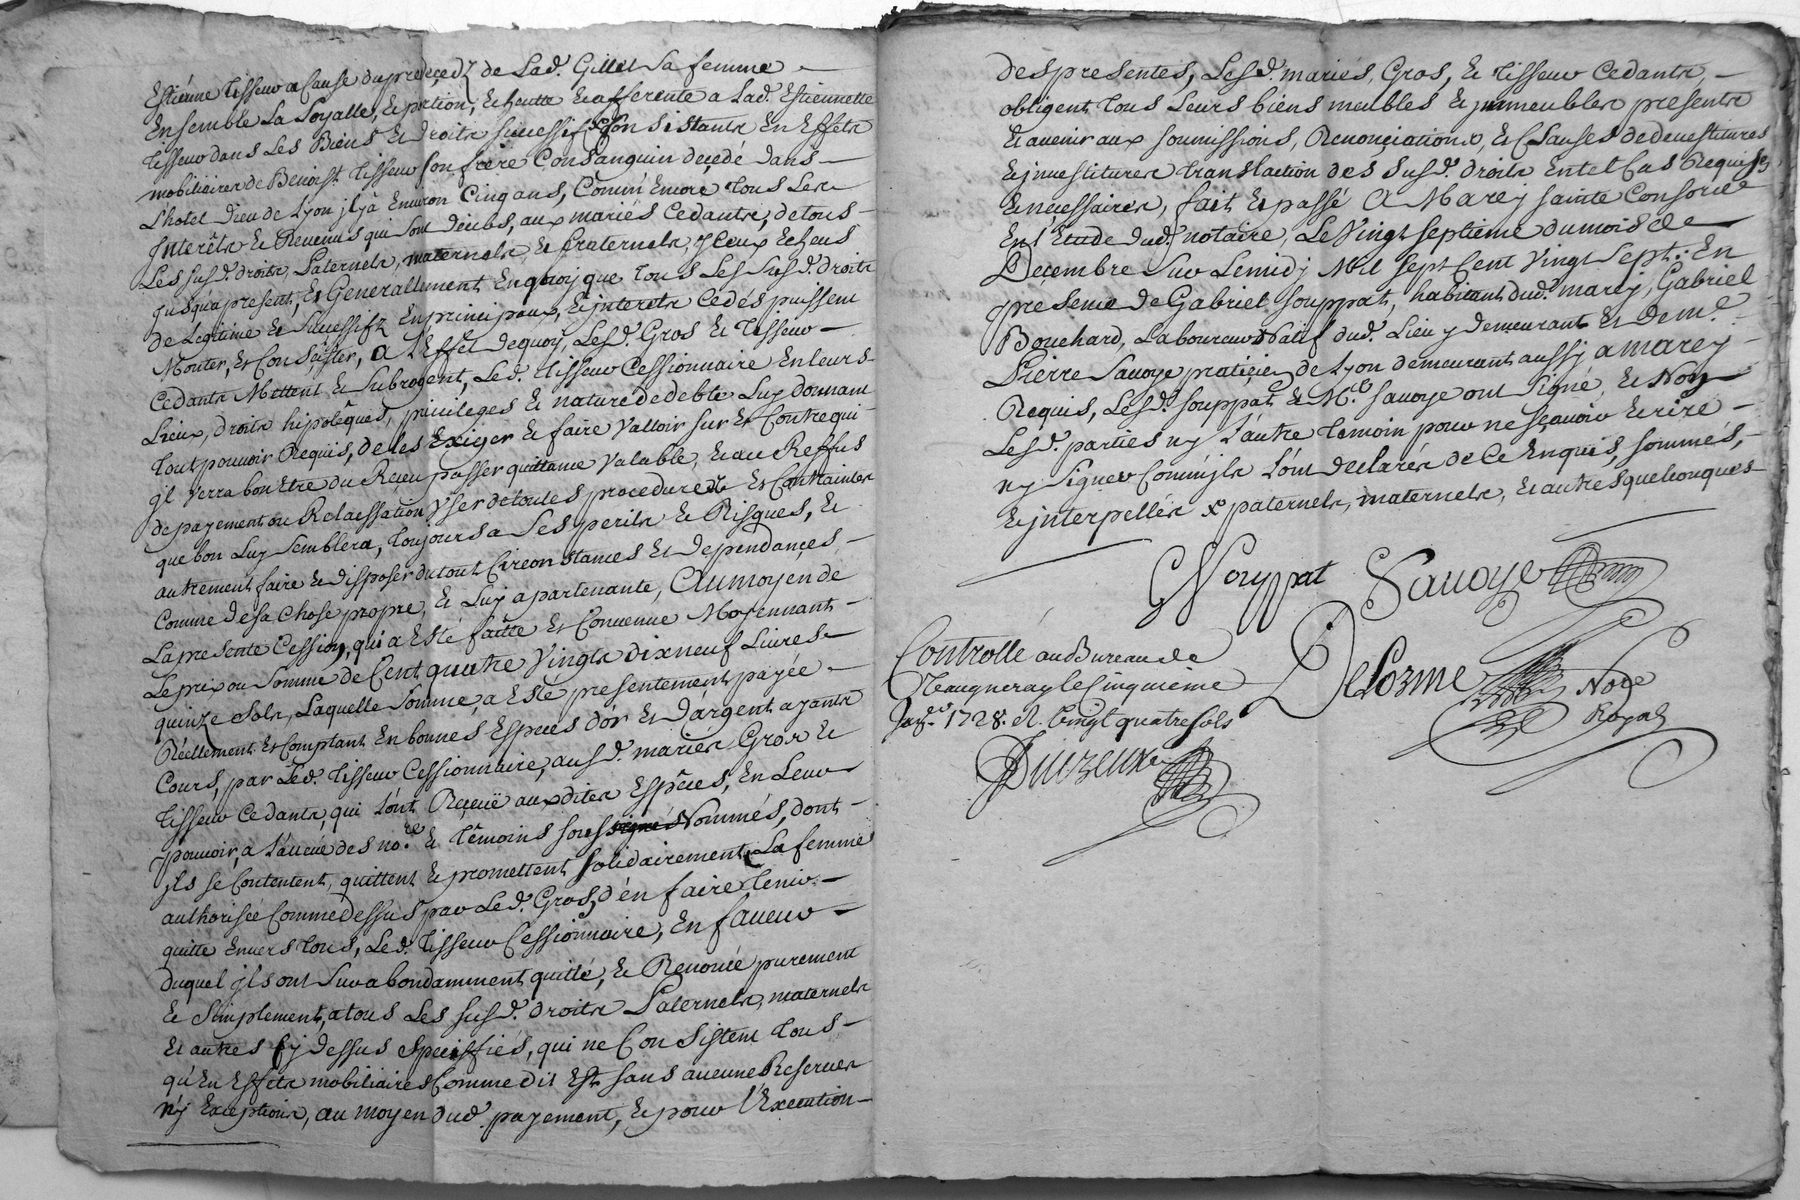 Estienne Tisseur a Cause du predeçedz de Lad. Gillet Sa femme
Ensemble La Loyalle, Et portion, Echeutte Et afferente a Lad. Estiennette
Tisseur dans Les Biens Et droits successifs Consistants En Effets
mobiliaires de Benoist Tisseur son frère Consanguin deçedé dans
L'hotel Dieu de Lyon jl y a Environ Cinq ans, Comm' Encore tous Les
Interêts Et Revenus qui sont deübs, aux mariés Cedants, de tous
Les susd. droits Paternels, maternels, Et fraternels, yceux Echeus
Jusqu'a present, Et Generallement En quoy que tous Les Susd. droits
de Legitime Et Successifz En principaux, Et interets Cedés puissent
Monter, Et Consister, A L'Effet de quoy, Lesd. Gros Et Tisseur
Cedants Mettent Et Subrogent, Led. Tisseur Cessionnaire En leurs
Lieux, droits hipotêques, privileges Et nature de debte Luy donnant
tout pouvoir Requis, de les Exiger Et faire Valloir sur Et Contre qui
jl verra bon Etre du Reçeu passer quittance Valable, Et au Reffus
de payement ou Relaxation User de toutes procedures Et Contraintes
que bon Luy Semblera, toujours a Ses perils Et Risques, Et
autrement faire Et disposer du tout Circonstances Et dependances
Comme de sa Chose propre, Et Luy apartenante, Au moyen de
La presente Cession, qui a Esté faitte Et Convenue Moyennant
Le prix ou Somme de Cent quatre Vingts dix neuf Livres
quinze Sols, Laquelle Somme, a Esté presentement payée
Réellement Et Comptant En bonnes Especes d'or Et d'argent ayants
Cours, par Led. Tisseur Cessionnaire, ausd. mariés Gros Et
Tisseur Cedants, qui L'ont Reçeuë auxdites Espêces, En Leur
pouvoir, a La veüe des no.re Et têmoins sous signés Nommés, dont
jls se Contentent, quittent Et promettent solidairement, La femme
authorisée Comme dessus par Led. Gros, d'en faire tenir
quitte Envers tous, Led. Tisseur Cessionnaire, En faveur
duquel jls ont Surabondamment quitté, Et Renoncé purement
Et Simplement, a tous Les susd. droits Paternels, maternels
Et autres Cy dessus Speciffiés, qui ne Consistent tous
qu'En Effets mobiliaires Comme dit Est sans aucune Reserves
n'y Exceptions, au moyen dud. payement, Et pour L'Execution
des presentes, Lesd. mariés, Gros, Et Tisseur Cedants,
obligent tous Leurs biens meubles Et jmmeubles presents
Et avenir aux soumissions, Renonçiations, Et Clauses de devestitures
Et jnvestitures translaction des Susd. droits En tel Cas Requises
Et necessaires, fait Et passé A Marcy sainte Consorce
En l'Etude dud. notaire, Le Vingt septieme du mois de
Decembre Sur Le midy Mil sept Cent Vingt Sept: En
présence de Gabriel Souppat, habitant dud. marcy, Gabriel
Bouchard, Laboureur Natif dud. Lieu y demeurant Et de M.e
Pierre Savoye pratiçien de Lyon demeurant aussy a marcy
Requis, Lesd. souppat, & M.e savoye ont Signé, Et Non
Lesd. parties ny L'autre temoin pour ne sçavoir Ecrire
ny Signer Comm'jls L'ont declarés de Ce Enquis, sommés,
Et jnterpellés x paternels, maternels, Et autres quelconques
G Souppat Savoye
Controllé au Bureau de
Vaugneray le Cinquieme
Janv.er 1728. R. Vingt quatre sols
DeLorme No.re
Royal